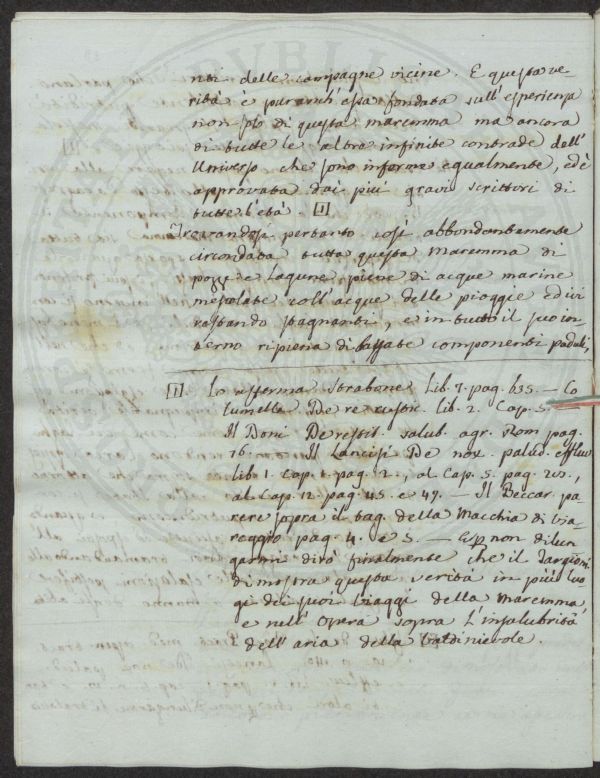 nti delle campagne vicine. E questa ve-
rità è puranch'essa fondata sull'esperienza
non solo di questa maremma ma ancora
di tutte le altre infinite contrade dell'
Universo che sono inferme egualmente, ed è
approvata dai più gravi scrittori di
tutte l'età. [1]
Trovandosi pertanto così abbondantemente
circondata tutta questa maremma di
pozze e Lagune piene di acque marine
mescolate coll'acque delle pioggie ed ivi
restando stagnanti, e in tutto il suo in-
terno ripiena di bassate componenti paduli,
[1] Lo afferma Strabone Lib. 7. pag. 635. — Co
lumella De re rustic. Lib. 2. Cap. 5.
Il Doni De restit. salub. agr. Rom pag.
16. Il Lancisi De nox. palud. effluv
lib 1. Cap. 1. pag. 2., al Cap. 5. pag.
al Cap. 12. pag. 45. e 49. — Il Beccar. pa-
rere sopra il tag. della Macchia di Via-
reggio pag. 4. e 5. — E non dilun
garmi dirò finalmente che il Targioni
dimostra questa verità in più luo
gi dei suoi viaggi della Maremma,
e nell'Opera sopra L'insalubrità
dell'aria della Valdinievole.